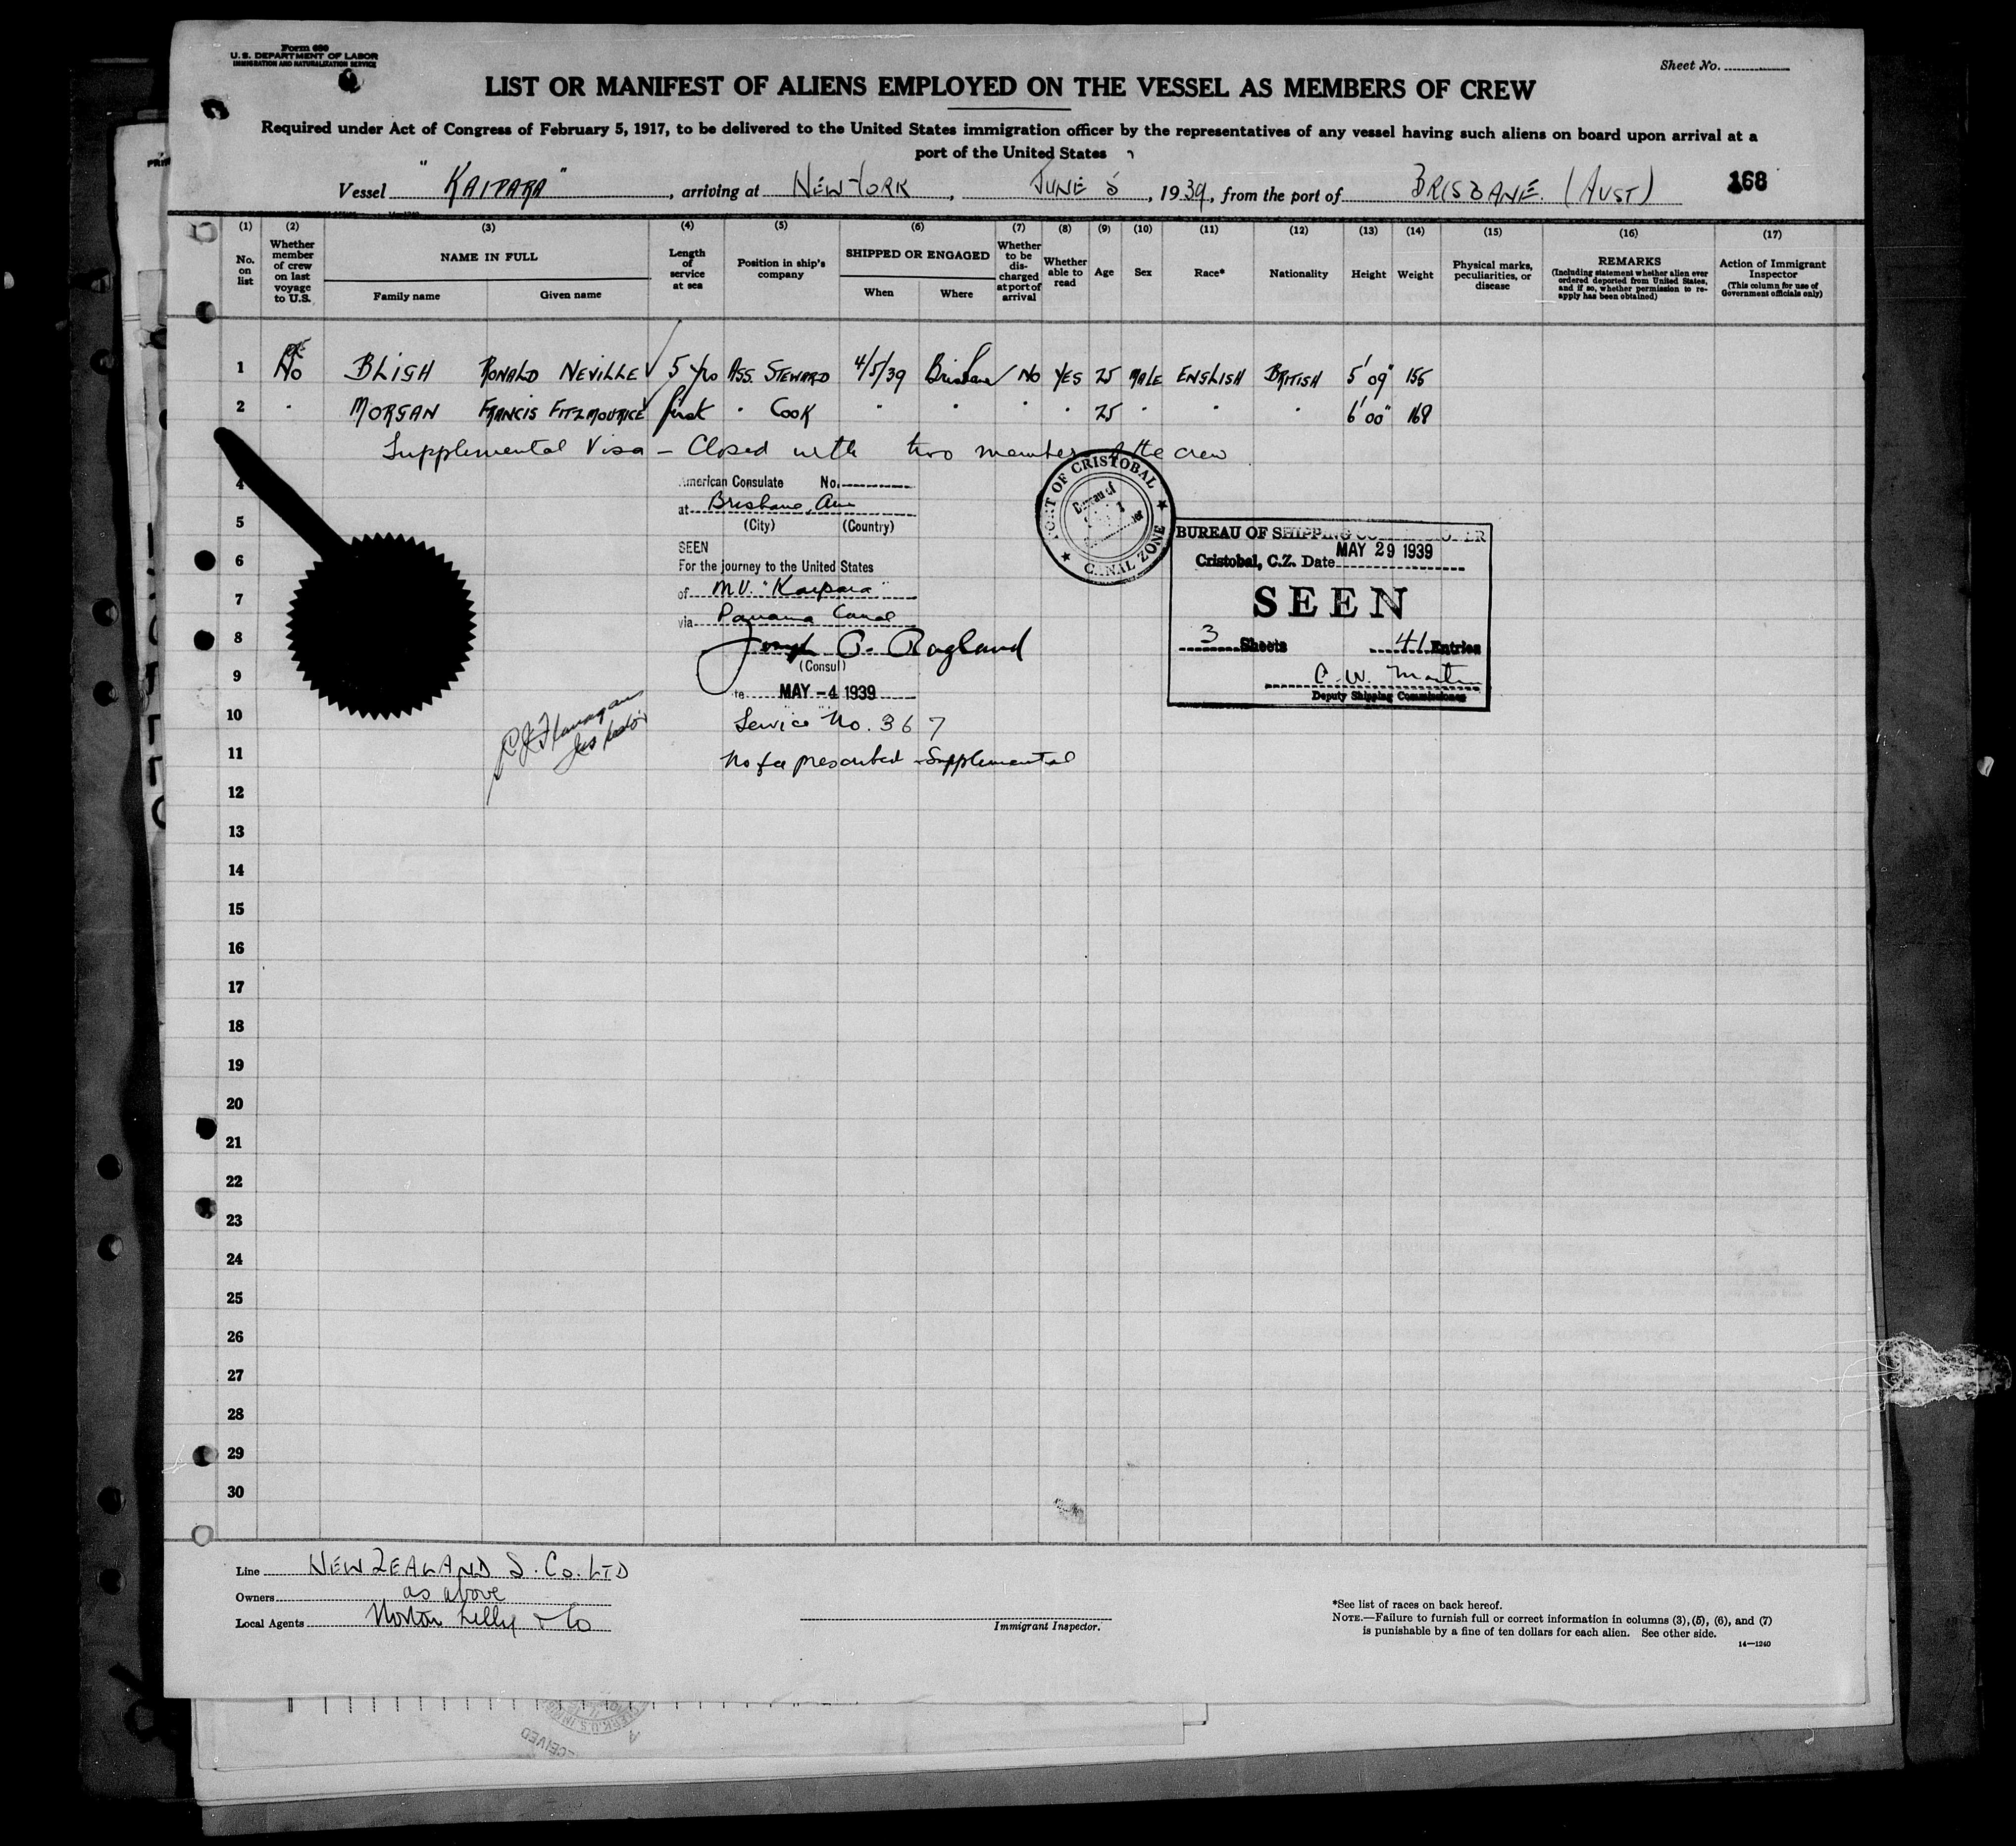 Form 680
U. S. DEPARTMENT OF LABOR
IMMIGRATION AND NATURALIZATION SERVICE
Sheet No.
LIST OR MANIFEST OF ALIENS EMPLOYED ON THE VESSEL AS MEMBERS OF CREW
Required under Act of Congress of February 5, 1917, to be delivered to the United States immigration officer by the representatives of any vessel having such aliens on board upon arrival at a
port of the United States
Vessel "KAIPARA", arriving at NEW YORK, JUNE 5, 1939, from the port of BRISBANE. (AUST) 168
(1) (2) (3) (4) (5) (6) (7) (8) (9) (10) (11) (12) (13) (14) (15) (16) (17)
No. on list
Whether member of crew on last voyage to U.S.
NAME IN FULL
Family name Given name
Length of service at sea
Position in ship's company
SHIPPED OR ENGAGED
When Where
Whether to be discharged at port of arrival
Whether able to read
Age
Sex
Race*
Nationality
Height
Weight
Physical marks, peculiarities, or disease
REMARKS
(Including statement whether alien ever ordered deported from United States, and if so, whether permission to re-apply has been obtained)
Action of Immigrant Inspector
(This column for use of Government officials only)
1 No BLIGH RONALD NEVILLE 5 yrs ASS. STEWARD 4/5/39 Brisbane NO YES 25 MALE ENGLISH BRITISH 5'09" 155
2 " MORGAN FRANCIS FITZMOURICE first " COOK " " " " 25 " " " 6'00" 168
Supplemental Visa – Closed with two members of the crew
4
American Consulate No.
at Brisbane, Aus
5
(City) (Country)
SEEN
6
For the journey to the United States
7
of M.V. "Kaipara"
via Panama Canal
8
Joseph P. Ragland
(Consul)
9
MAY -4 1939
10
Service No. 367
11
No fee prescribed - Supplemental
PORT OF CRISTOBAL
CANAL ZONE
Bureau of
BUREAU OF SHIPPING
Cristobal, C.Z. Date MAY 29 1939
SEEN
3 Sheets 41 Entries
C. W. Martin
Deputy Shipping Commissioner
12
13
14
15
16
17
18
19
20
21
22
23
24
25
26
27
28
29
30
Line NEW ZEALAND S. Co. LTD
Owners as above
Local Agents Norton Lilly & Co
Immigrant Inspector.
*See list of races on back hereof.
NOTE.—Failure to furnish full or correct information in columns (3), (5), (6), and (7)
is punishable by a fine of ten dollars for each alien. See other side.
14—1240